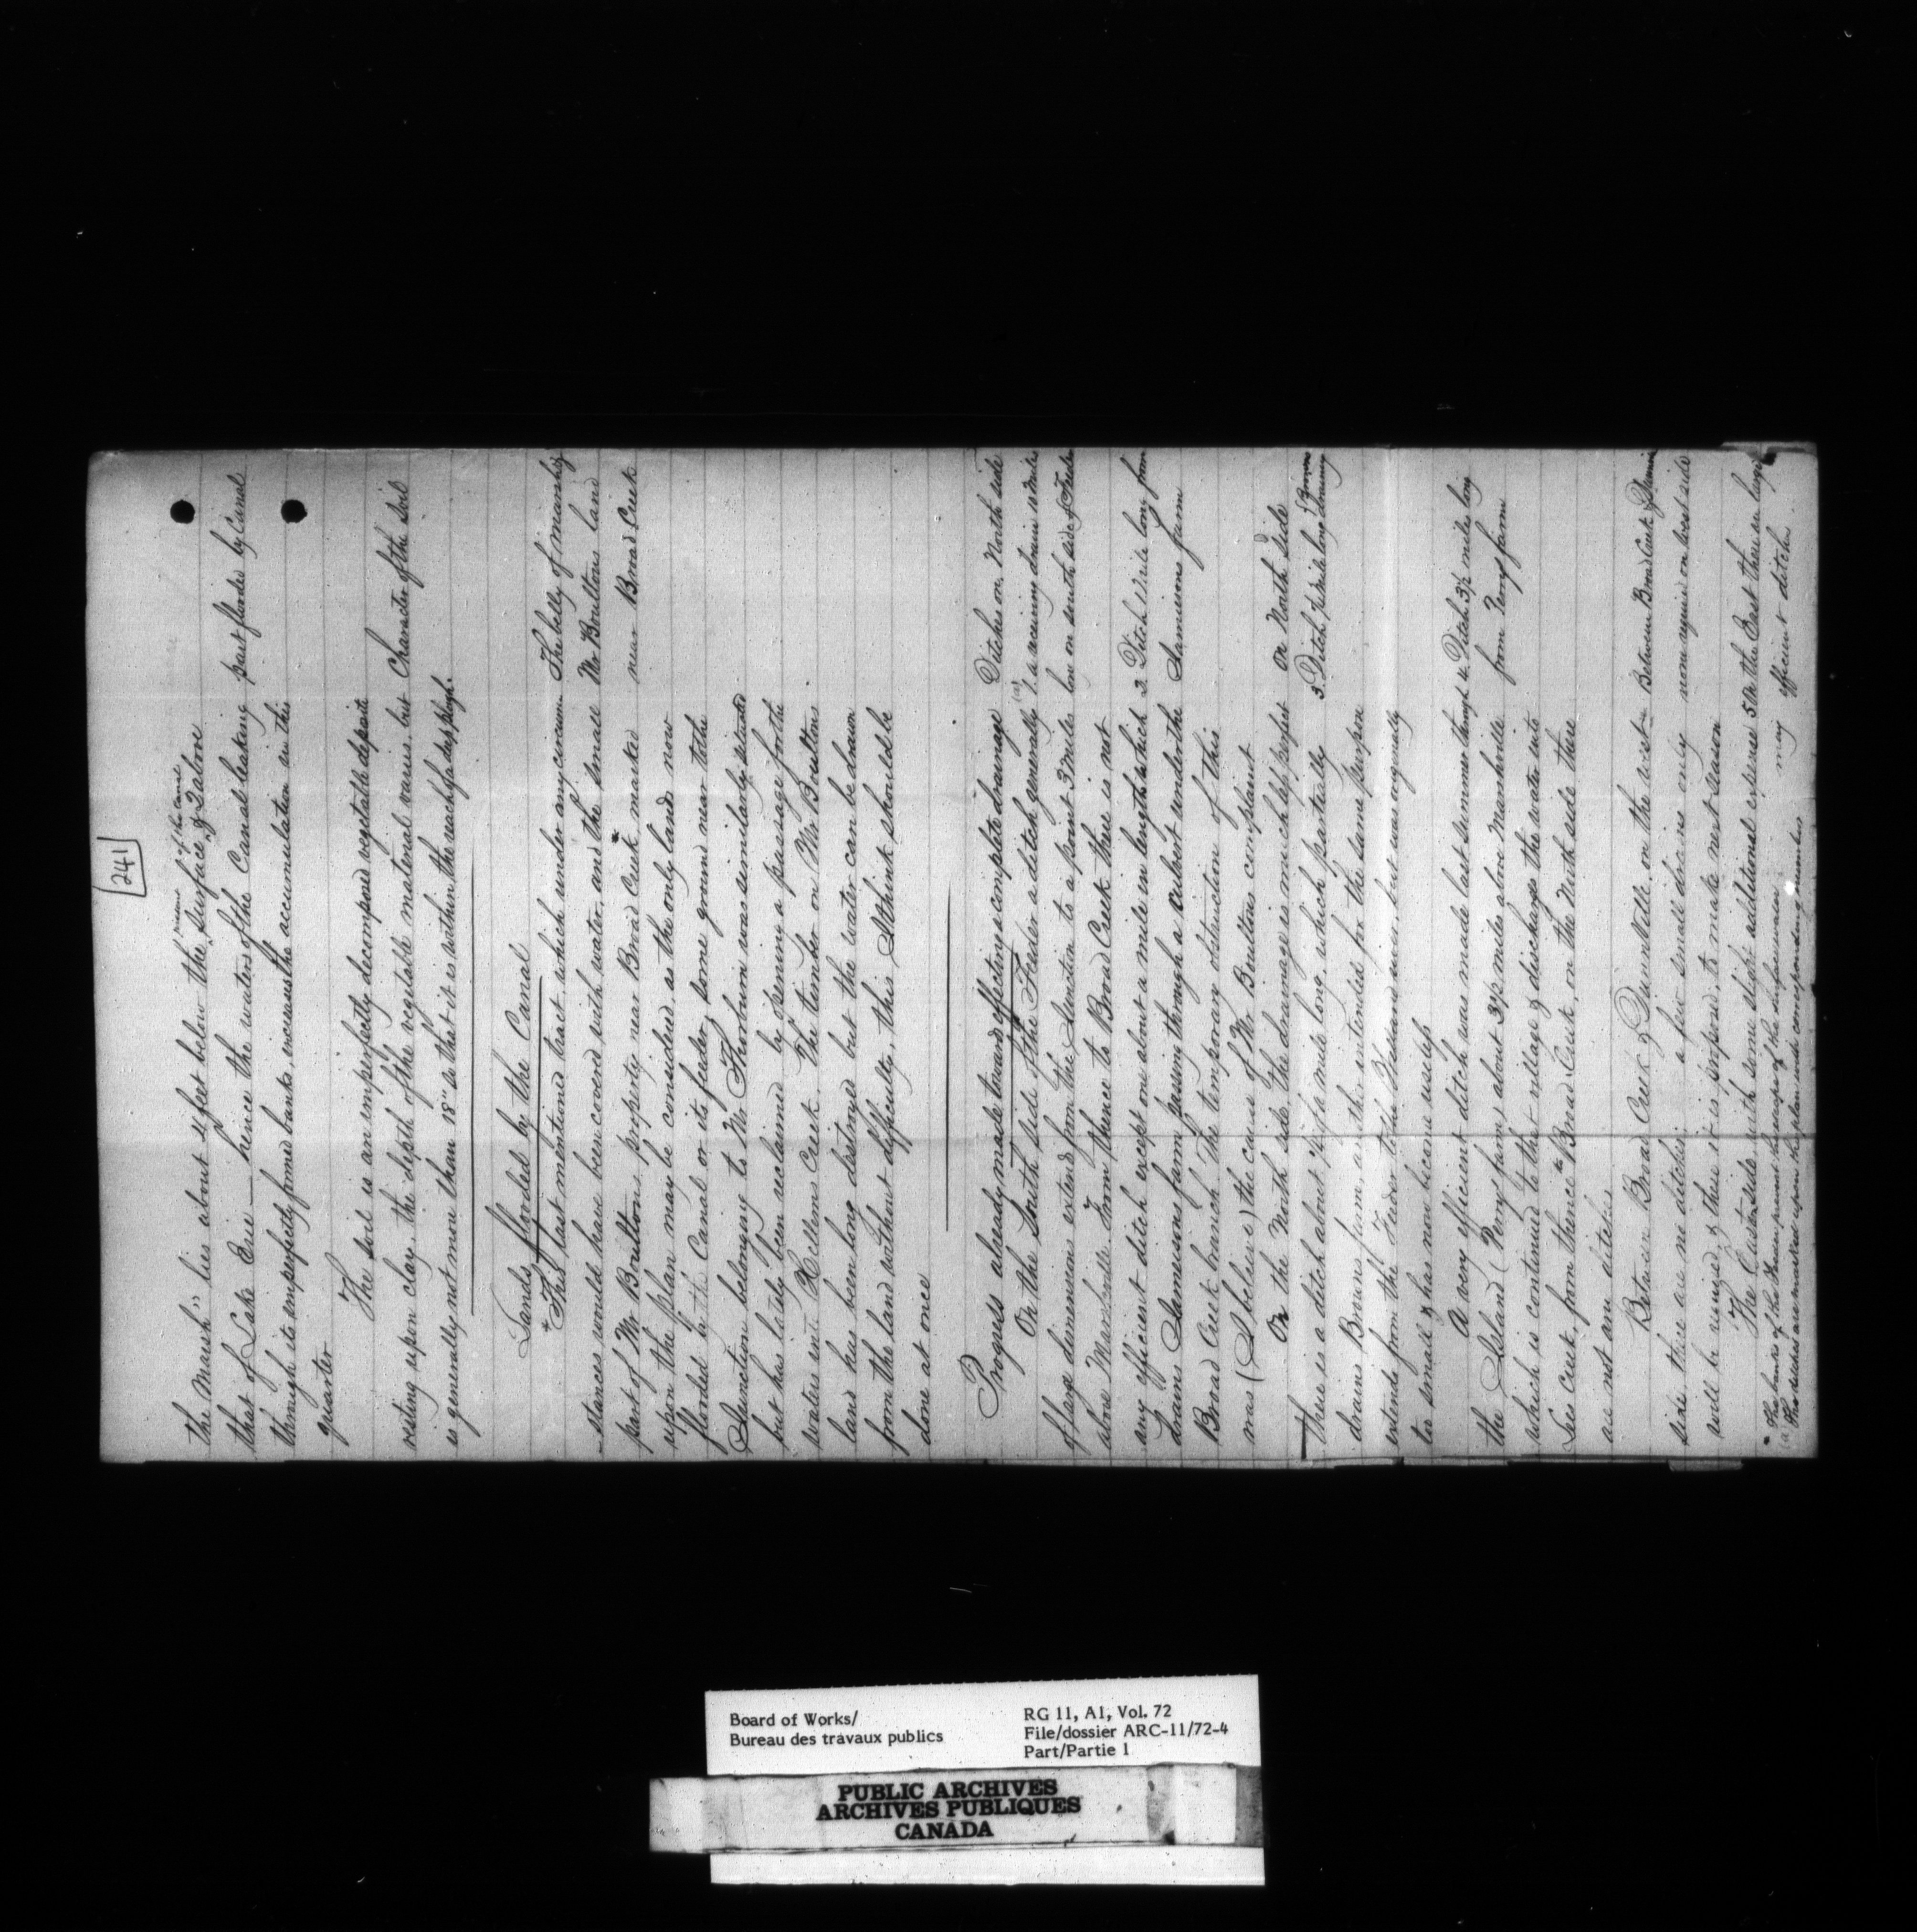 241
the Marsh" lies about 4 feet below the present surface of the Canal & 2 above
that of Lake Erie — hence the waters of the Canal leaking
through its imperfectly formed banks, increases the accumulation in this
quarter
part flooded by Canal
The soil is an imperfectly decomposed vegetable deposite
resting upon clay, the depth of the vegetable material varies, but
is generally not more than 18" so that it is within the reach of a deep plough.
Character of the Soil
Lands flooded by the Canal
* This last mentioned tract, which under any circum
-stances would have been covered with water, and the small
part of Mr Boultons property near Broad Creek marked *
upon the plan may be considered, as the only land now
flooded by the Canal or its feeder, some ground near to the
Junction belonging to Mr Thorburn was similarly situated
but has lately been reclaimed by opening a passage for the
waters into Hellems Creek. The timber on Mr Boultons
land has been long destroyed but the water can be drawn
from the land without difficulty, this I think should be
done at once
The belly of marsh &
Mr Boultons land
near Broad Creek
Progress already made towards effecting a complete drainage
On the South side of the Feeder a ditch generally
of large dimensions extends from the Junction to a point 3 miles
above Marshville. From thence to Broad Creek there is not
any efficient ditch except one about a mile in length which
drains Jamiesons farm passing through a culvert under the
Broad Creek branch. The temporary obstruction of this
was (I believe) the cause of Mr Boultons complaint
Ditches on North side
(a) 1. a receiving drain 13 miles
long on south side of Feeder
2 Ditch 1 mile long from
Jamiesons farm
On the North side the drainage is much less perfect
there is a ditch about ½ of a mile long, which partially
drains Browns farm, another intended for the same purpose
extends from the Feeder to the Welland river, but was originally
too small & has now become useless
on North side
3 Ditch ½ mile long drains Browns
A very efficient ditch was made last summer through
the Island (Perrys farm) about 3½ miles above Marshville
which is continued to that village & discharges the water into
Lees Creek, from thence to Broad Creek, on the North side there
are not any ditches
4. Ditch 3½ miles long
from Perry farm
Between Broad Creek & Dunnville on the west
side there are no ditches, a few small drains only
will be required & these it is proposed to make next season
Between Broad Creek & Dunnville
none require on west side
The Eastern side with some slight additional expense
may
5th the East there is a large
efficient ditch
* The banks of the Drain prevent the escape of the surface water
(a) The ditches are marked upon the plan with corresponding numbers
Board of Works/
Bureau des travaux publics
RG 11, A1, Vol. 72
File/dossier ARC-11/72-4
Part/Partie 1
PUBLIC ARCHIVES
ARCHIVES PUBLIQUES
CANADA